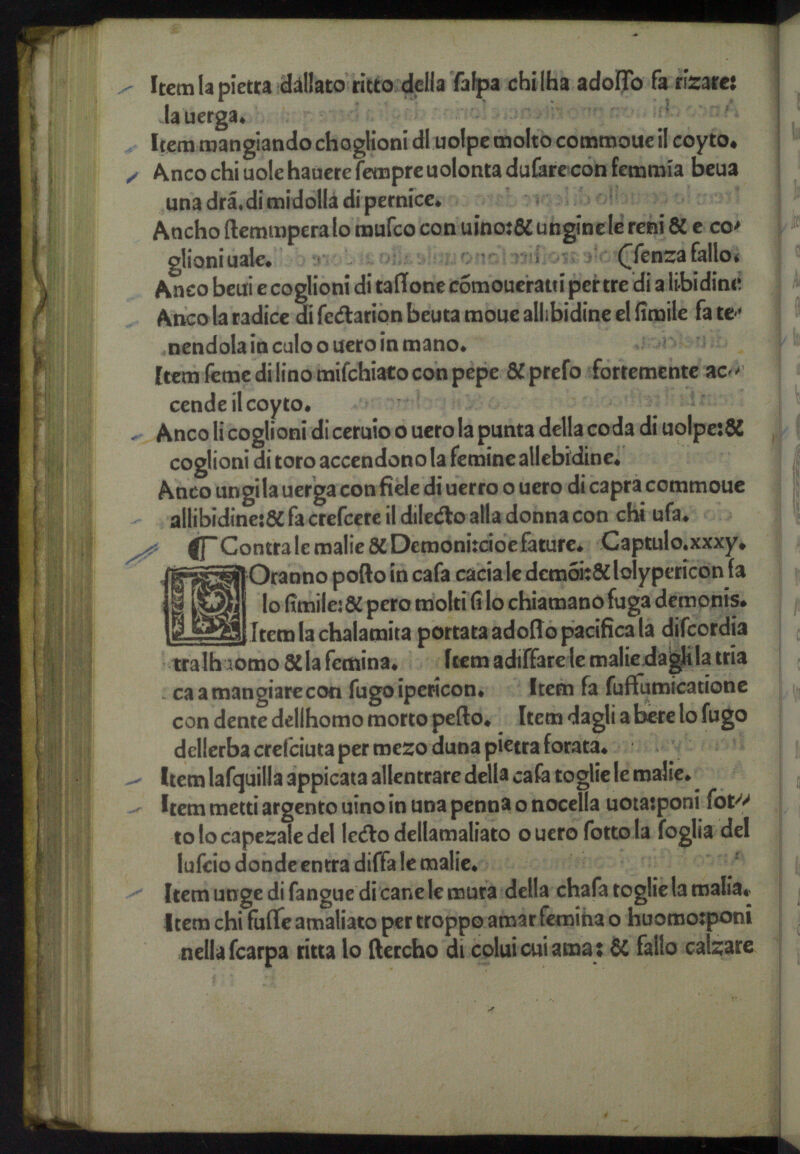 Item la pietra dallato ritto della ſalpa chi lha adoſſo fa rizare:
la uerga.
Item mangiando choglioni dl uolpe molto commoue il coyto.
Anco chi uole hauere ſempre uolonta duſare con femmīa beua
una drā. di midolla di pernice.
Ancho ſtemmpera lo muſco con uino: & ungine le reni & e co⸗
glioni uale. (ſenza fallo.
Anco beui e coglioni di taſſone cōmoueratti per tre di a libidine
Anco la radice di ſectarion beuta moue allibidine el ſimile fa te⸗
nendola in culo o uero in mano.
Item ſeme di lino miſchiato con pepe & preſo fortemente ac⸗
cende il coyto.
Anco li coglioni di ceruio o uero la punta della coda di uolpe: &
coglioni di toro accendono la femine allebidine.
Anco ungi la uerga con fiele di uerro o uero di capra commoue
allibidine: & fa creſcere il dilecto alla donna con chi uſa.
¶ Contra le malie & Demoni: cioe fature. Captulo. xxxy.
LOranno poſto in caſa cacia le demōi: & lolypericon fa
lo ſimile: & pero molti ſi lo chiamano fuga demonis.
Item la chalamita portata adoſſo pacifica la diſcordia
tralhuomo & la femina. Item adiſfare le malie dagli la tria
ca a mangiare con ſugo ipericon. Item fa ſuffumicatione
con dente dellhomo morto peſto. Item dagli a bere lo ſugo
dellerba creſciuta per mezo duna pietra forata.
Item laſquilla appicata allentrare della caſa toglie le malie.
Item metti argento uiuo in una penna o nocella uota: poni ſot⸗
to lo capezale del lecto dellamaliato o uero ſotto la ſoglia del
luſcio donde entra diſfa le malie.
Item unge di ſangue di cane le mura della chaſa toglie la malia.
Item chi fuſſe amaliato per troppo amar femina o huomo: poni
nella ſcarpa ritta lo ſtercho di colui cui ama: & fallo calzare